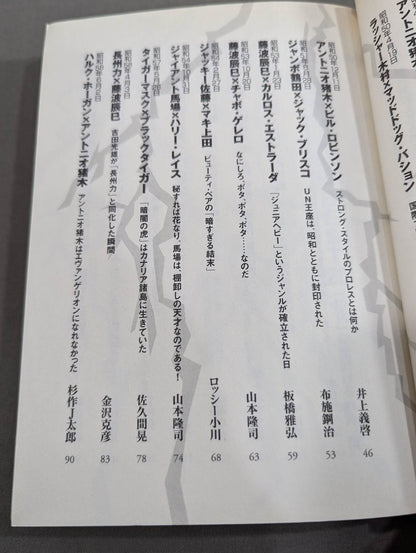 昭和50年4月19日
ラッシャー木村×マッドドッグ・バション
国際
昭和50年12月11日
アントニオ猪木×ビル・ロビンソン
ストロング・スタイルのプロレスとは何か
井上義啓
46
ジャンボ鶴田×ジャック・ブリスコ
UN王座は、昭和とともに封印された
布施鋼治
53
昭和53年1月23日
藤波辰巳×カルロス・エストラーダ
「ジュニアヘビー」というジャンルが確立された日
板橋雅弘
59
昭和53年10月20日
藤波辰巳×チャボ・ゲレロ
なにしろ、ボタ、ボタ、ボタ……なのだ
山本隆司
63
昭和54年2月27日
ジャッキー佐藤×マキ上田
ビューティ・ペアの「暗すぎる結末」
ロッシー小川
68
昭和54年10月31日
ジャイアント馬場×ハリー・レイス
秘すれば花なり、馬場は、棚卸しの天才なのである!
山本隆司
74
昭和57年5月26日
タイガーマスク×ブラックタイガー
「暗闇の虎」はカナリア諸島に生きていた
佐久間晃
78
昭和58年4月3日
長州力×藤波辰巳
吉田光雄が「長州力」と同化した瞬間
金沢克彦
83
昭和58年6月2日
ハルク・ホーガン×アントニオ猪木
アントニオ猪木はエヴァンゲリオンになれなかった
杉作J太郎
90